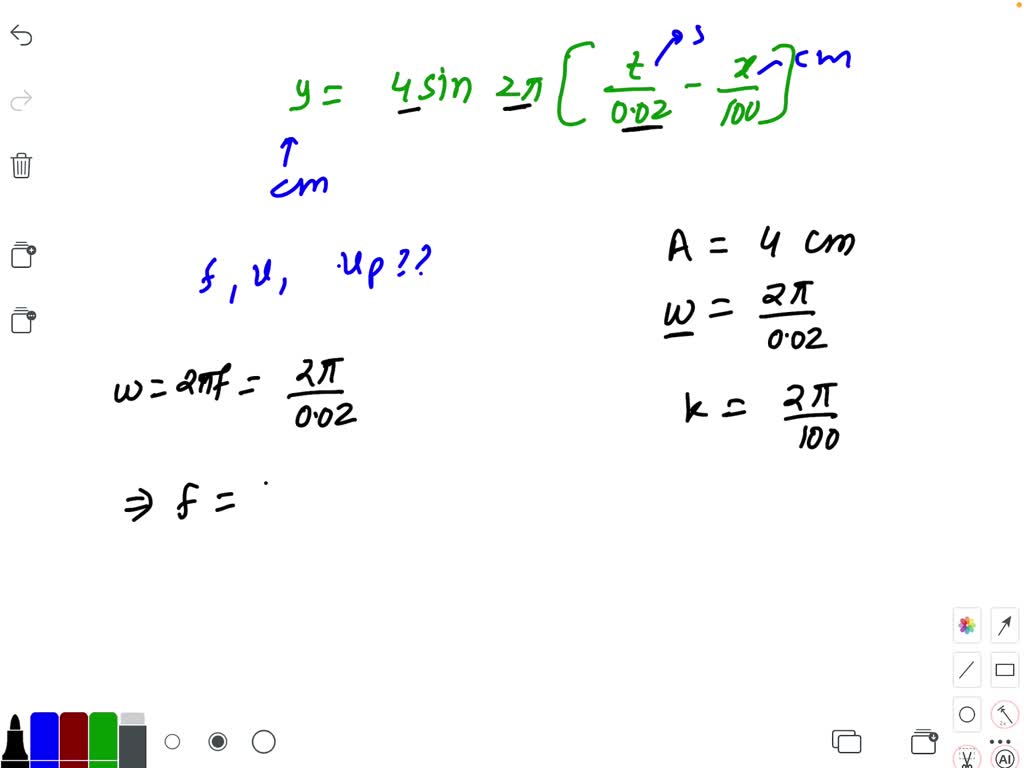 y = 4 sin 2π [ t/0.02 - x/100 ]
s
cm
cm
f, v, vp??
A = 4 cm
w = 2π/0.02
k = 2π/100
w = 2πf = 2π/0.02
⇒ f =
AI